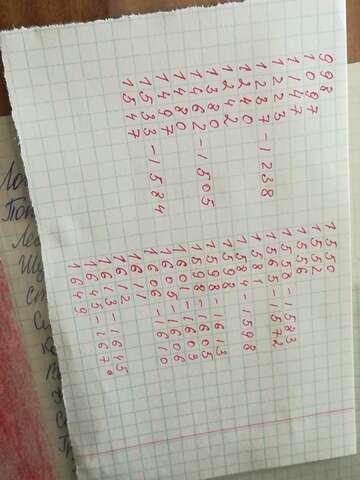 988
1097
1147
1223
1237-1238
1240
1242
1380
1462-1505
1480
1497
1533-1584
1547
1550
1552
1556
1558-1583
1565-1572
1581
1584-1598
1598-1613
1598-1605
1601-1603
1605-1606
1606-1610
1611
1612
1613-1645
1645-1676
1649